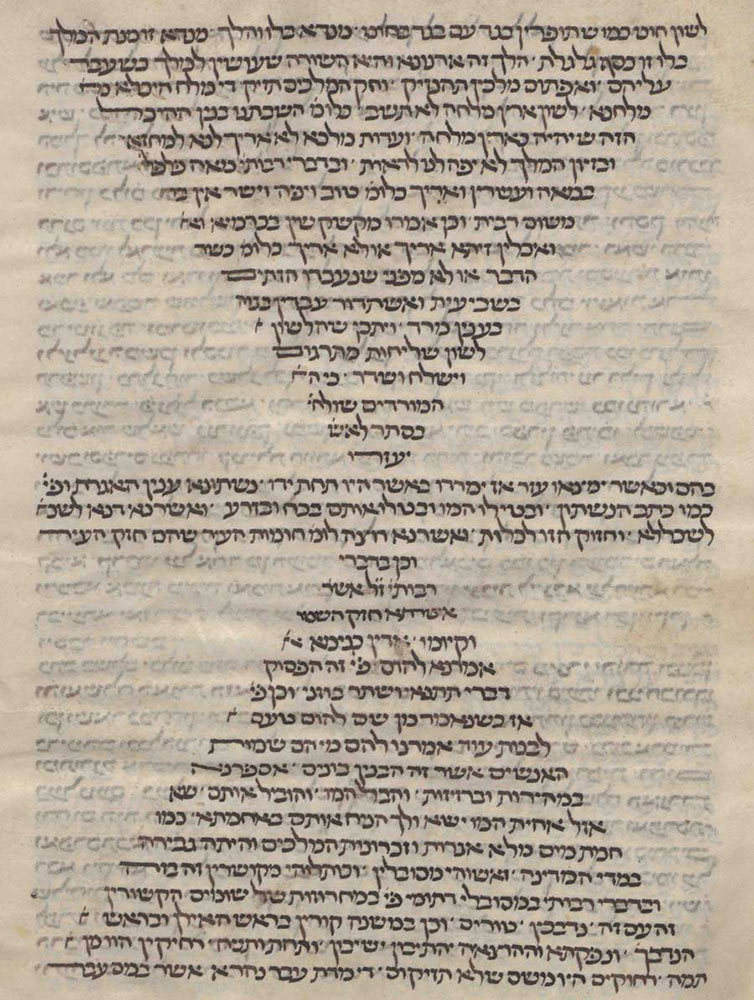 לשון חוט כמו שתופרין בגד עם בגד בחוט׳ מנדא בלו והלך׳ מנדא זו מנת המלך
בלו זו כסף גלגלת׳ הלך זה ארנונא והיא השורה שעושין למלך כשעבר
עליהם׳ ואפתום מלכין תהנזיק׳ וחק המלכים תזיק די מלח היכלא מה׳
מלחנא׳ לשון ארץ מלחה לא תשב׳ כלומ׳ השבתנו בנין ההיכל
הזה שיהיה כארץ מלחה׳ וערות מלכא לא אריך לנא למחזא׳
ובזיון המלך לא יפה לנו לראות׳ ובדברי רבותי׳ מאה פלפלי
במאה ועשרין ואריך כלומ׳ טוב ויפה וישר אין בה
משום רבית׳ וכן אמרו מקשקשין בכרמיא וא׳
ואכלין זיתא אריך או לא אריך כלומ׳ כשר
הדבר או לא מפני שנעבדו הזתים
בשביעית ואשתדור עבדין בגוה
כענין מרד׳ ויתכן שהלשון
לשון שליחות מתרגום
וישלח ושדר׳ כי ה׳
המורדים שולח׳
בסתר לאש׳
יעזרו
בהם וכאשר ימצאו עזר אז ימרדו באשר היו תחת ידו׳ נשתונא ענין האגרת ופי׳
כמו כתב הנשתון׳ ובטילו המו ובטלו אותם בכח ובזרוע׳ ואשרנא דנא לשכ׳
לשכללא׳ וחזוק הזו לכלות׳ ואשרנא רוצה לומ׳ חומות העיר שהם חזק העיר
וכן בדברי
רבותי׳ ז״ל אשר
אשרתא חזק השטר
וקיומו׳ אדין כנימא
אמרנא להום׳ פי׳ זה הפסוק
דברי תתנאי ושתר בוזני׳ וכן פי׳
אז כשנאמר מן שם להום טעם
לבנות עוד אמרנו להם מי הם שמות
האנשים אשר זה הבנין בונים׳ אספרנא
במהירות ובזריזות׳ והבל המו׳ והוביל אותם׳ שא
אזל אחית המו׳ ישא ולך הנח אותם באחמתא׳ כמו
חמת מים מלא אגרות וזכרונות המלכים והיתה גבירה
במדי המדינה׳ ואשוהי מסובלין׳ וכותלוהי מקושרין זה בזה
ובדברי רבותי׳ במסובלי׳ רתומי׳ פי׳ במחרוזות של שומים הקשורין
זה עם זה׳ נדבכין׳ טורים׳ וכן במשנה קורין בראש האילן ובראש
הנדבך׳ ונפקתא וההוצאה׳ יהתיבון ישיבון׳ ותחת ותבוא׳ רחיקין הוו מן
תמה׳ רחוקים היו משם שלא תזיקום׳ די מדת עבר נהרא׳ אשר במס עבר